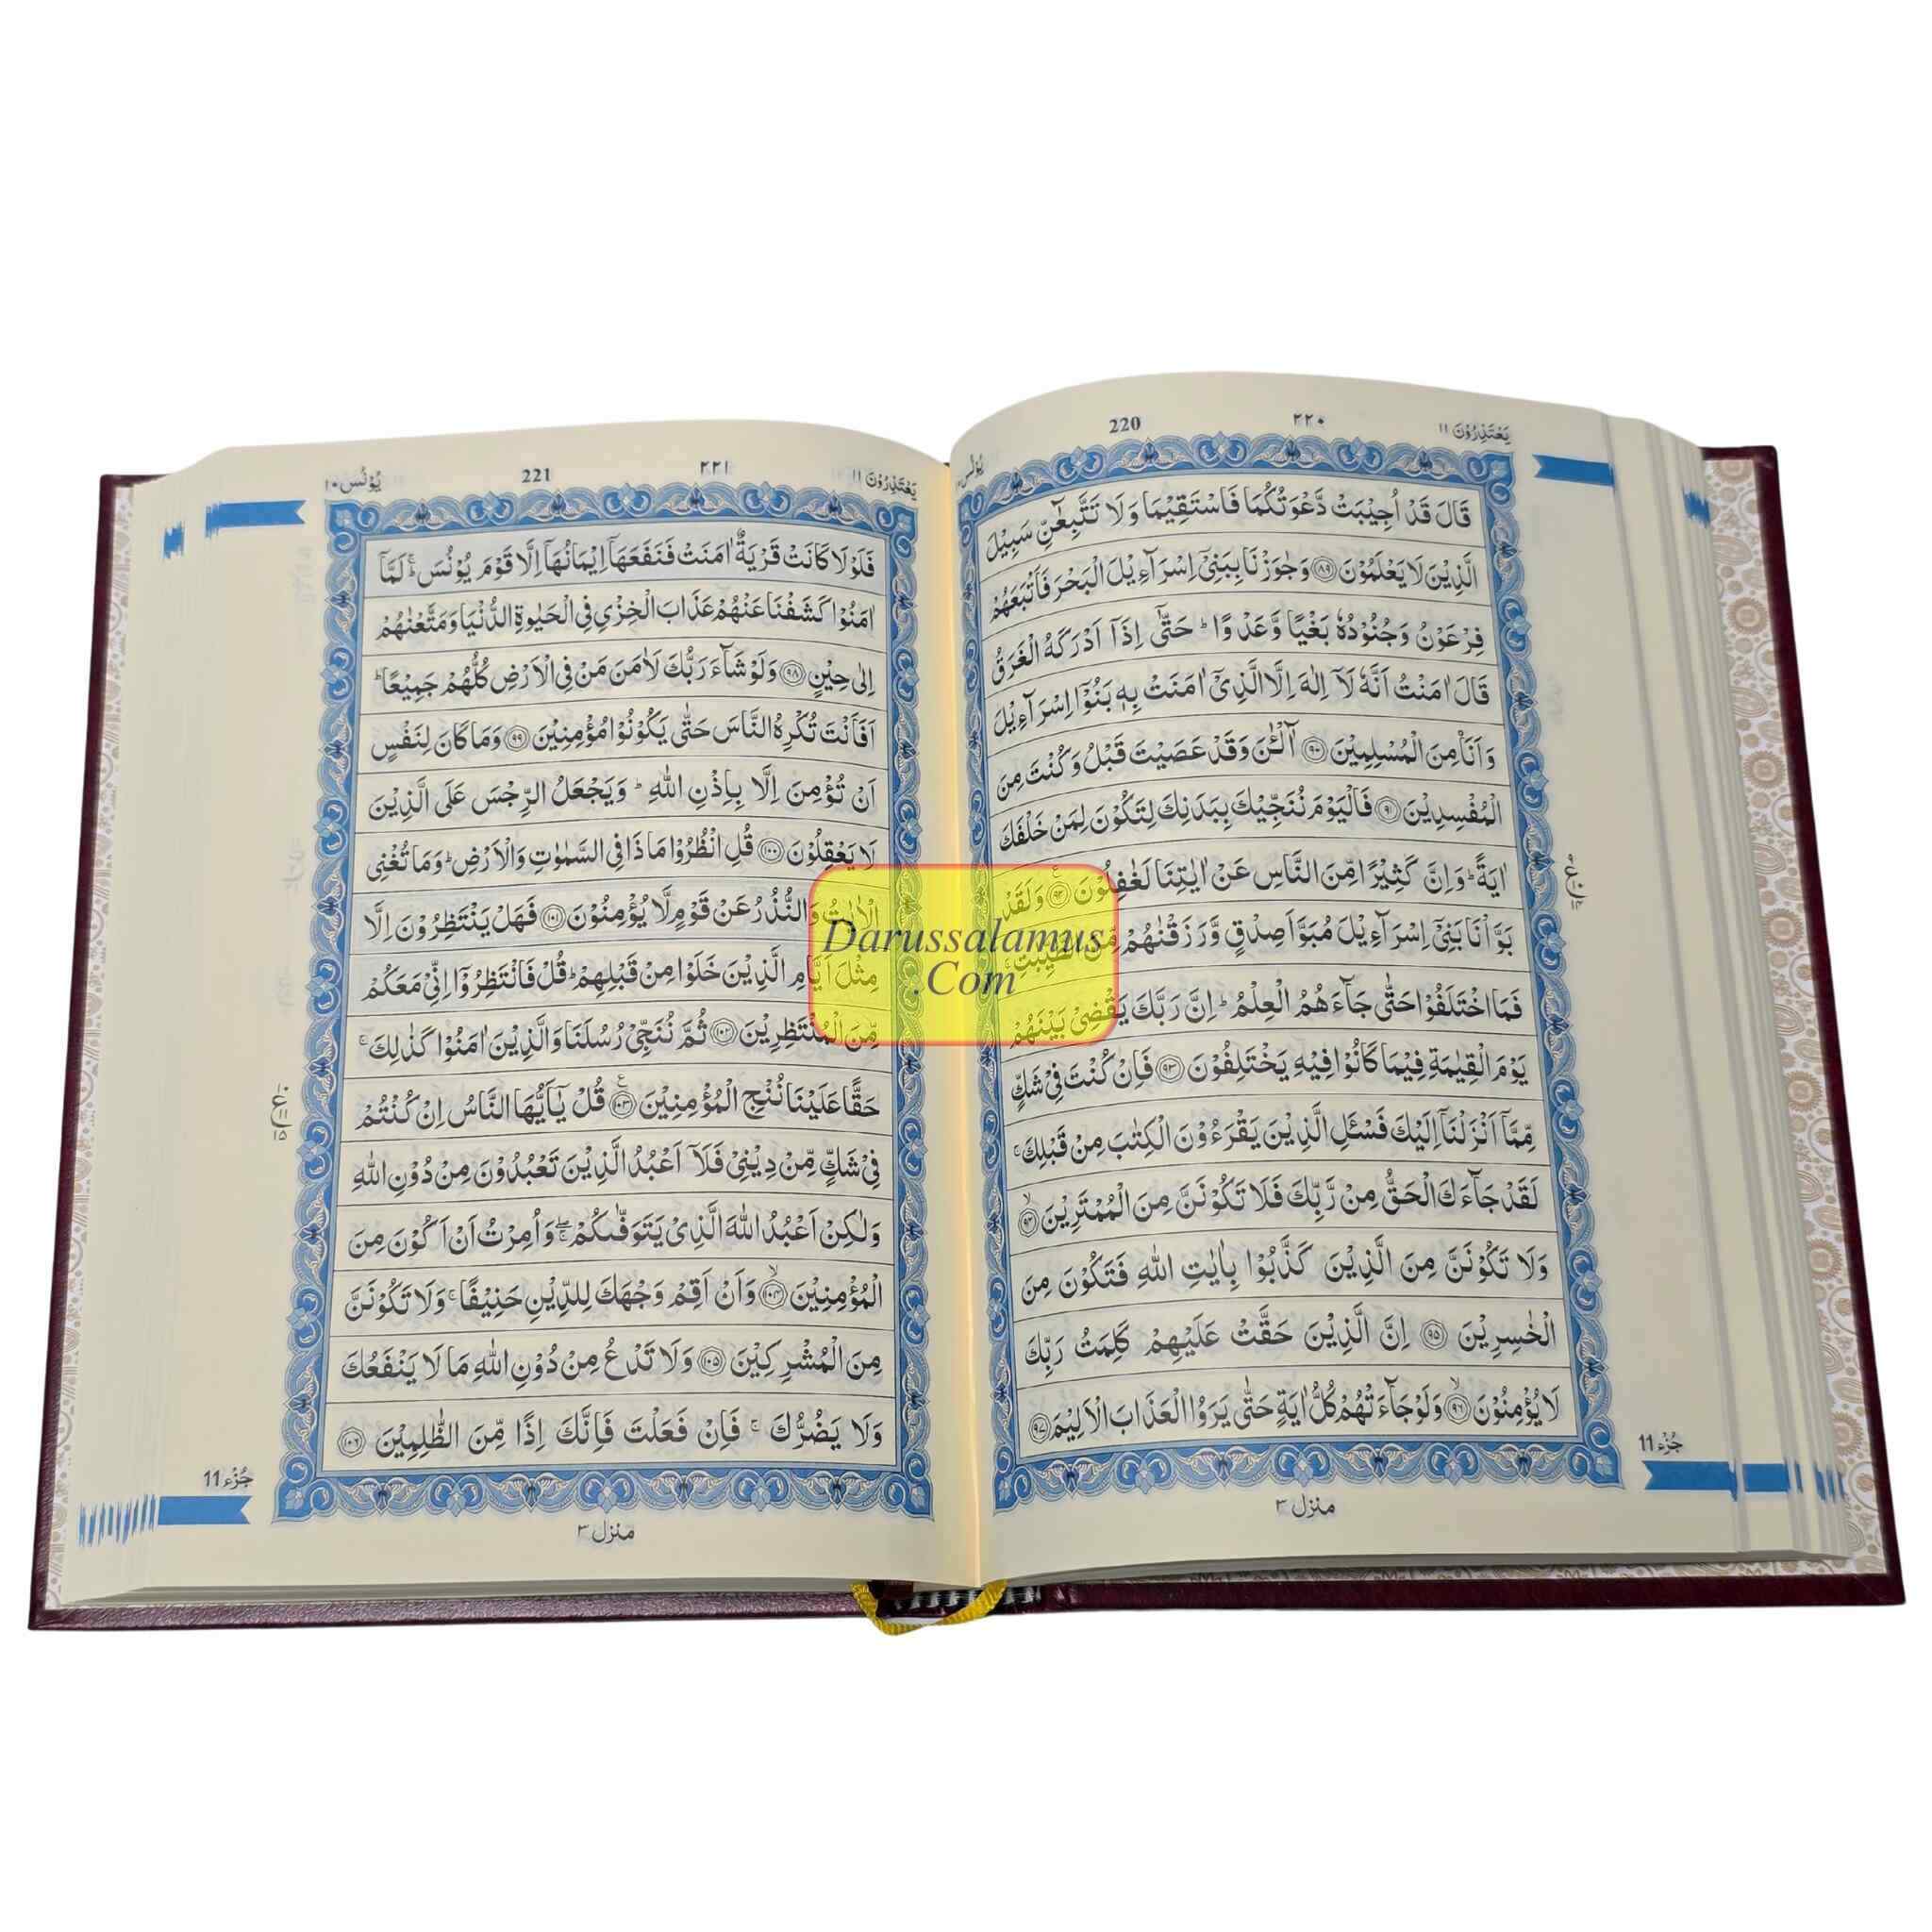 يَعْتَذِرُوْنَ ١١
٢٢٠
220
يُوْنُس
قَالَ قَدْ اُجِيْبَتْ دَّعْوَتُكُمَا فَاسْتَقِيْمَا وَلَا تَتَّبِعٰٓنِّ سَبِيْلَ
الَّذِيْنَ لَا يَعْلَمُوْنَ ﴿٨٩﴾ وَجٰوَزْنَا بِبَنِيْٓ اِسْرَآءِيْلَ الْبَحْرَ فَاَتْبَعَهُمْ
فِرْعَوْنُ وَجُنُوْدُهٗ بَغْيًا وَّعَدْوًا ؕ حَتّٰٓى اِذَآ اَدْرَكَهُ الْغَرَقُ
قَالَ اٰمَنْتُ اَنَّهٗ لَآ اِلٰهَ اِلَّا الَّذِيْٓ اٰمَنَتْ بِهٖ بَنُوْٓا اِسْرَآءِيْلَ
وَاَنَا۠ مِنَ الْمُسْلِمِيْنَ ﴿٩٠﴾ آٰلْـٰٔنَ وَقَدْ عَصَيْتَ قَبْلُ وَكُنْتَ مِنَ
الْمُفْسِدِيْنَ ﴿٩١﴾ فَالْيَوْمَ نُنَجِّيْكَ بِبَدَنِكَ لِتَكُوْنَ لِمَنْ خَلْفَكَ
اٰيَةً ؕ وَاِنَّ كَثِيْرًا مِّنَ النَّاسِ عَنْ اٰيٰتِنَا لَغٰفِلُوْنَ ﴿٩٢﴾ وَلَقَدْ
بَوَّاْنَا بَنِيْٓ اِسْرَآءِيْلَ مُبَوَّاَ صِدْقٍ وَّرَزَقْنٰهُمْ مِّنَ الطَّيِّبٰتِ ۚ
فَمَا اخْتَلَفُوْا حَتّٰى جَآءَهُمُ الْعِلْمُ ؕ اِنَّ رَبَّكَ يَقْضِيْ بَيْنَهُمْ
يَوْمَ الْقِيٰمَةِ فِيْمَا كَانُوْا فِيْهِ يَخْتَلِفُوْنَ ﴿٩٣﴾ فَاِنْ كُنْتَ فِيْ شَكٍّ
مِّمَّآ اَنْزَلْنَآ اِلَيْكَ فَسْـَٔلِ الَّذِيْنَ يَقْرَءُوْنَ الْكِتٰبَ مِنْ قَبْلِكَ ۚ
لَقَدْ جَآءَكَ الْحَقُّ مِنْ رَّبِّكَ فَلَا تَكُوْنَنَّ مِنَ الْمُمْتَرِيْنَ ﴿٩٤﴾
وَلَا تَكُوْنَنَّ مِنَ الَّذِيْنَ كَذَّبُوْا بِاٰيٰتِ اللّٰهِ فَتَكُوْنَ مِنَ
الْخٰسِرِيْنَ ﴿٩٥﴾ اِنَّ الَّذِيْنَ حَقَّتْ عَلَيْهِمْ كَلِمَتُ رَبِّكَ
لَا يُؤْمِنُوْنَ ﴿٩٦﴾ وَلَوْ جَآءَتْهُمْ كُلُّ اٰيَةٍ حَتّٰى يَرَوُا الْعَذَابَ الْاَلِيْمَ ﴿٩٧﴾
جُزْء 11
منزل ٣
يَعْتَذِرُوْنَ ١١
٢٢١
221
يُوْنُس ١٠
فَلَوْلَا كَانَتْ قَرْيَةٌ اٰمَنَتْ فَنَفَعَهَآ اِيْمَانُهَآ اِلَّا قَوْمَ يُوْنُسَ ؕ لَمَّآ
اٰمَنُوْا كَشَفْنَا عَنْهُمْ عَذَابَ الْخِزْيِ فِي الْحَيٰوةِ الدُّنْيَا وَمَتَّعْنٰهُمْ
اِلٰى حِيْنٍ ﴿٩٨﴾ وَلَوْ شَآءَ رَبُّكَ لَاٰمَنَ مَنْ فِي الْاَرْضِ كُلُّهُمْ جَمِيْعًا ؕ
اَفَاَنْتَ تُكْرِهُ النَّاسَ حَتّٰى يَكُوْنُوْا مُؤْمِنِيْنَ ﴿٩٩﴾ وَمَا كَانَ لِنَفْسٍ
اَنْ تُؤْمِنَ اِلَّا بِاِذْنِ اللّٰهِ ؕ وَيَجْعَلُ الرِّجْسَ عَلَى الَّذِيْنَ
لَا يَعْقِلُوْنَ ﴿١٠٠﴾ قُلِ انْظُرُوْا مَاذَا فِي السَّمٰوٰتِ وَالْاَرْضِ ؕ وَمَا تُغْنِي
الْاٰيٰتُ وَالنُّذُرُ عَنْ قَوْمٍ لَّا يُؤْمِنُوْنَ ﴿١٠١﴾ فَهَلْ يَنْتَظِرُوْنَ اِلَّا
مِثْلَ اَيَّامِ الَّذِيْنَ خَلَوْا مِنْ قَبْلِهِمْ ؕ قُلْ فَانْتَظِرُوْٓا اِنِّيْ مَعَكُمْ
مِّنَ الْمُنْتَظِرِيْنَ ﴿١٠٢﴾ ثُمَّ نُنَجِّيْ رُسُلَنَا وَالَّذِيْنَ اٰمَنُوْا كَذٰلِكَ ۚ
حَقًّا عَلَيْنَا نُنْجِ الْمُؤْمِنِيْنَ ﴿١٠٣﴾ قُلْ يٰٓاَيُّهَا النَّاسُ اِنْ كُنْتُمْ
فِيْ شَكٍّ مِّنْ دِيْنِيْ فَلَآ اَعْبُدُ الَّذِيْنَ تَعْبُدُوْنَ مِنْ دُوْنِ اللّٰهِ
وَلٰكِنْ اَعْبُدُ اللّٰهَ الَّذِيْ يَتَوَفّٰىكُمْ ۖ وَاُمِرْتُ اَنْ اَكُوْنَ مِنَ
الْمُؤْمِنِيْنَ ﴿١٠٤﴾ وَاَنْ اَقِمْ وَجْهَكَ لِلدِّيْنِ حَنِيْفًا ۚ وَلَا تَكُوْنَنَّ
مِنَ الْمُشْرِكِيْنَ ﴿١٠٥﴾ وَلَا تَدْعُ مِنْ دُوْنِ اللّٰهِ مَا لَا يَنْفَعُكَ
وَلَا يَضُرُّكَ ۚ فَاِنْ فَعَلْتَ فَاِنَّكَ اِذًا مِّنَ الظّٰلِمِيْنَ ﴿١٠٦﴾
جُزْء 11
منزل ٣
Darussalamus
.Com